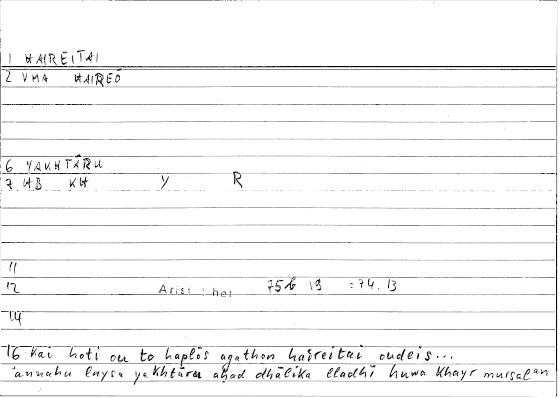 1 HAIREITAI
2 VMA HAIREŌ
6 YAKHTĀRU
7 HB KH Y R
11
12 Arist : het 75b 19 = 74.13
14
16 Kai hoti ou to haplōs agathon haireitai oudeis...
'annahu laysa yakhtāru aḥad dhālika lladhī huwa khayr mursalan